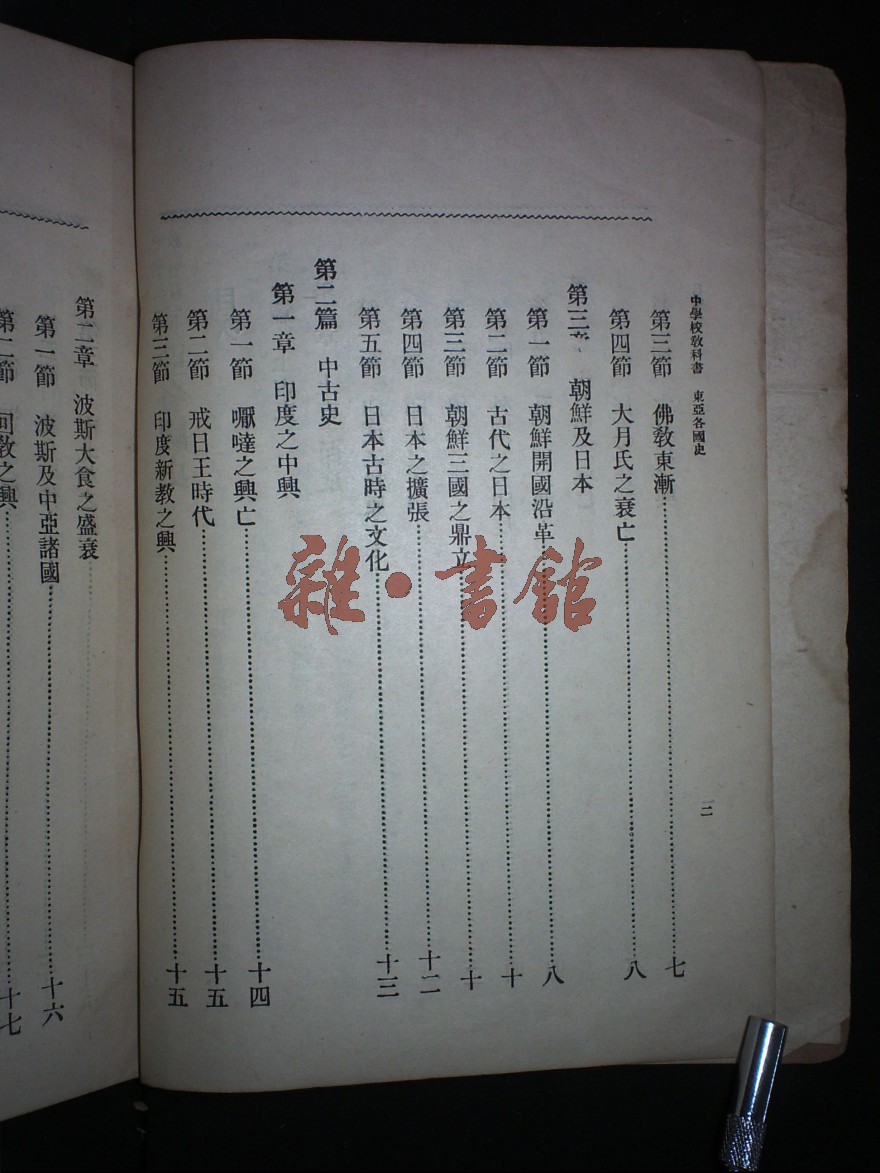 中學校教科書 東亞各國史
二
第三節 佛教東漸……七
第四節 大月氏之衰亡……八
第三章 朝鮮及日本
第一節 朝鮮開國沿革……八
第二節 古代之日本……十
第三節 朝鮮三國之鼎立……十
第四節 日本之擴張……十二
第五節 日本古時之文化……十三
第二篇 中古史
第一章 印度之中興
第一節 嚈噠之興亡……十四
第二節 戒日王時代……十五
第三節 印度新教之興……十五
第二章 波斯大食之盛衰
第一節 波斯及中亞諸國……十六
第二節 回教之興……十七
雜·書館